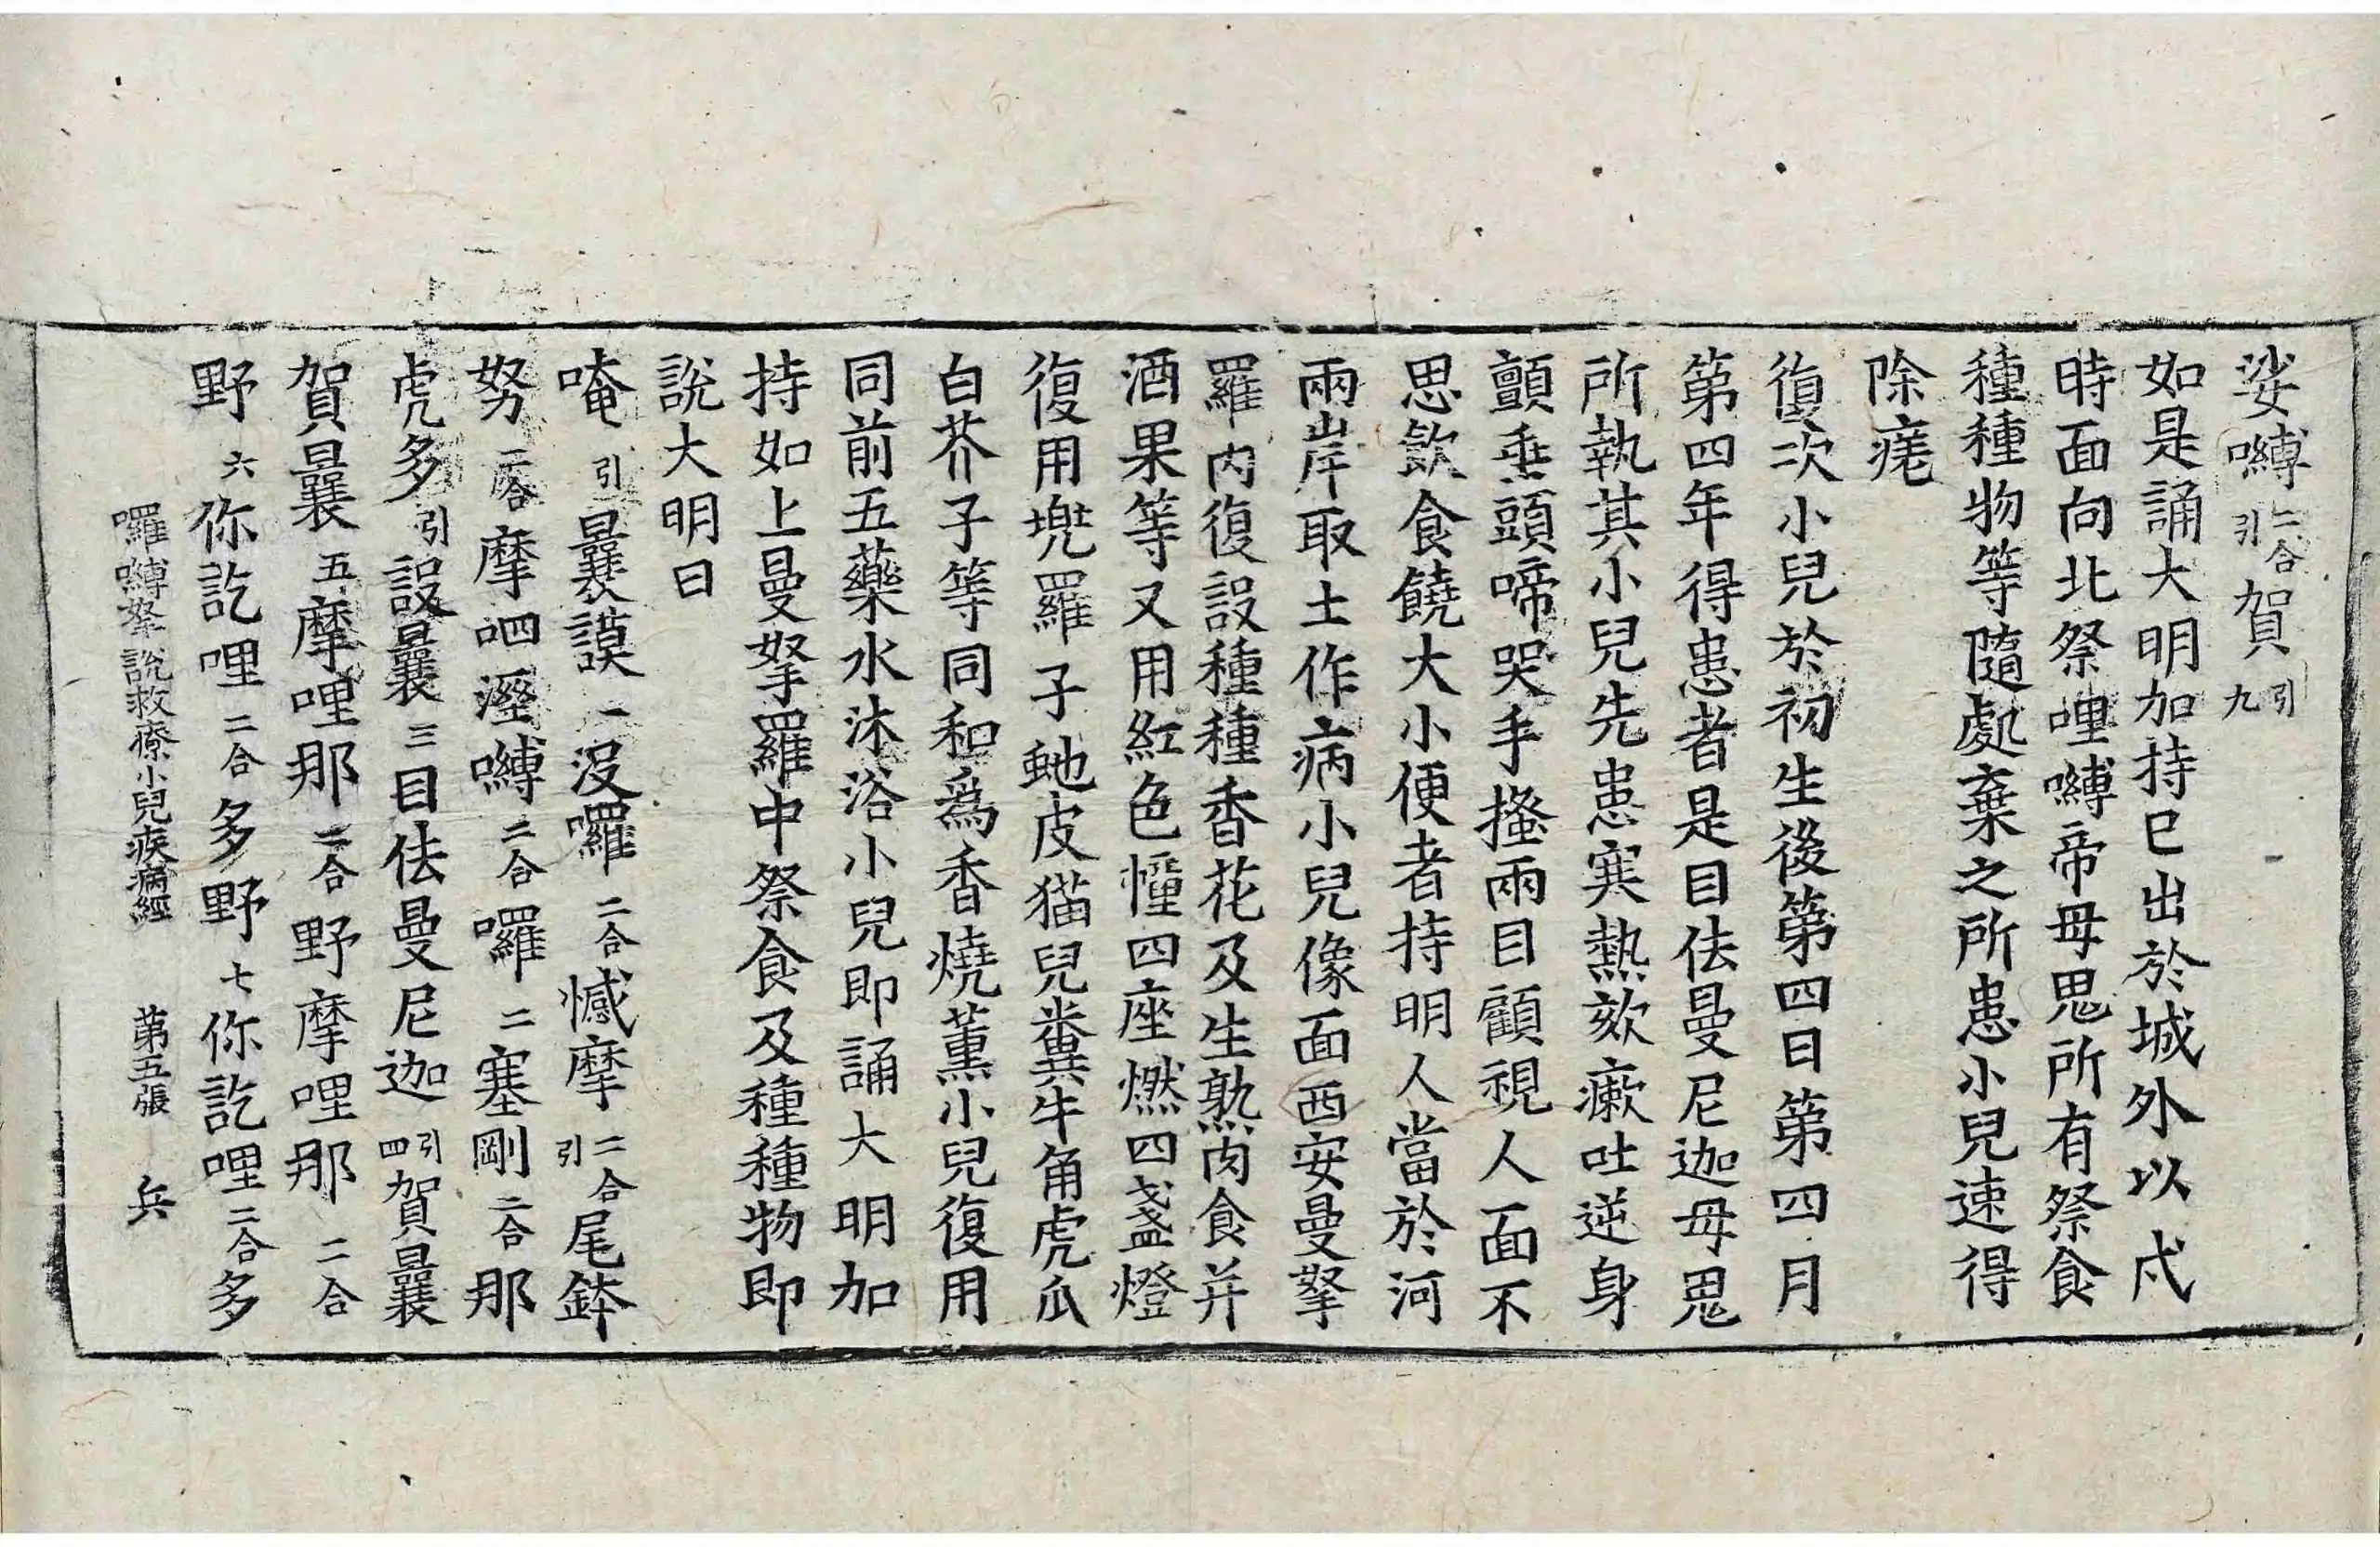 娑嚩二合引賀引九
如是誦大明加持已出於城外以戌
時面向北祭哩嚩帝母鬼所有祭食
種種物等隨處棄之所患小兒速得
除瘥
復次小兒於初生後第四日第四月
第四年得患者是目佉曼尼迦母鬼
所執其小兒先患寒熱欬瘶吐逆身
顫垂頭啼哭手搔兩目顧視人面不
思飲食饒大小便者持明人當於河
兩岸取土作病小兒像面西安曼拏
羅內復設種種香花及生熟肉食并
酒果等又用紅色憧四座燃四盞燈
復用兠羅子虵皮猫兒糞牛角虎爪
白芥子等同和為香燒薰小兒復用
同前五藥水沐浴小兒即誦大明加
持如上曼拏羅中祭食及種種物即
說大明曰
唵引曩謨一沒囉二合憾摩二合引尾鉢
努二合摩呬溼嚩二合囉二塞剛二合那
虎多引設曩三目佉曼尼迦引四賀曩
賀曩五摩哩那二合野摩哩那二合
野六你訖哩二合多野七你訖哩二合多
囉嚩拏說救療小兒疾病經 第五張 兵